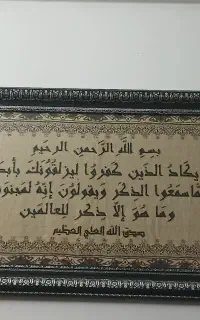 بسم الله الرحمن الرحيم
يكاد الذين كفروا ليزلقونك بأبصا
ما سمعوا الذكر ويقولون إنه لمجنو
وما هو إلا ذكر للعالمين
صدق الله العلي العظيم